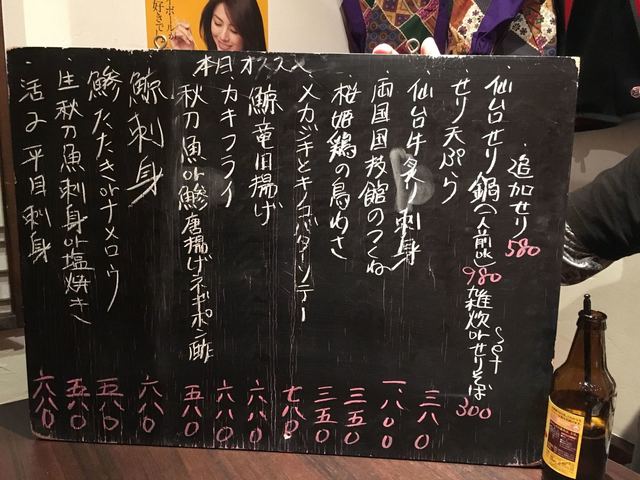 本日オススメ
追加せり 580
仙台せり鍋(一人前ok)980 雑炊orせりそば set 300
せり天ぷら 三八〇
仙台牛炙り刺身 一、八〇〇
両国国技館のつくね 三五〇
桜姫鶏の鳥わさ 三五〇
メカジキとキノコバターソテー 七八〇
鯨竜田揚げ 六八〇
カキフライ 六八〇
秋刀魚or鯵唐揚げネギポン酢 五八〇
鯨刺身 六八〇
鯵たたきorナメロウ 五八〇
生秋刀魚刺身or塩焼き 五八〇
活〆平目刺身 六八〇